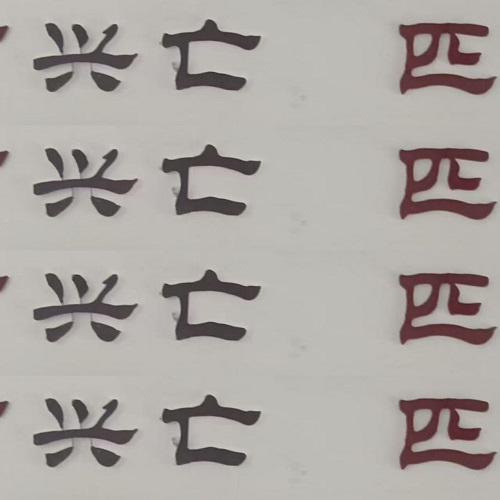 兴亡 匹
兴亡 匹
兴亡 匹
兴亡 匹